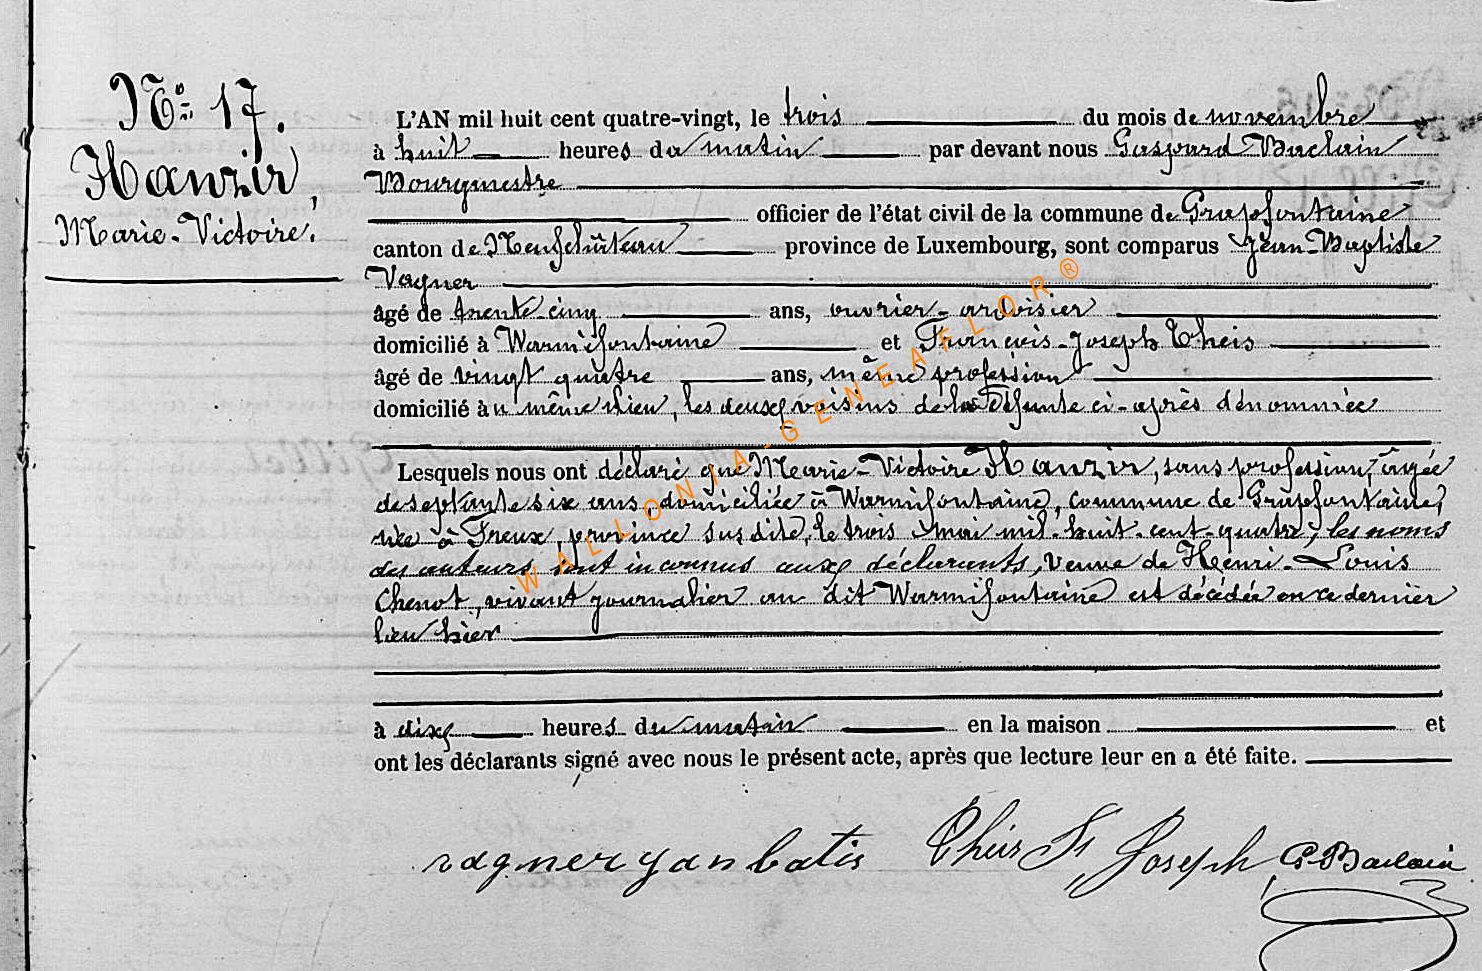 N° 17.
Hanzir,
Marie-Victoire.
L'AN mil huit cent quatre-vingt, le trois du mois de novembre
à huit heures du matin par devant nous Gaspard Baclain
Bourgmestre
officier de l'état civil de la commune de Grapfontaine
canton de Neufchâteau province de Luxembourg, sont comparus Jean-Baptiste
Vagner
âgé de trente cinq ans, ouvrier-ardoisier
domicilié à Warmifontaine et François-Joseph Theis
âgé de vingt quatre ans, même profession
domicilié au même lieu, les deux voisins de la défunte ci-après dénommée
Lesquels nous ont déclaré que Marie-Victoire Hanzir, sans profession, âgée
de septante six ans, domiciliée à Warmifontaine, commune de Grapfontaine,
née à Freux, province susdite, le trois mai mil-huit-cent-quatre, les noms
des auteurs sont inconnus aux déclarants, veuve de Henri-Louis
Chenot, vivant journalier au dit Warmifontaine est décédée en ce dernier
lieu hier
à dix heures du matin en la maison et
ont les déclarants signé avec nous le présent acte, après que lecture leur en a été faite.
vagner yan batis Theis Fs Joseph G Baclain
WALLONIA-GENEAFLOR®